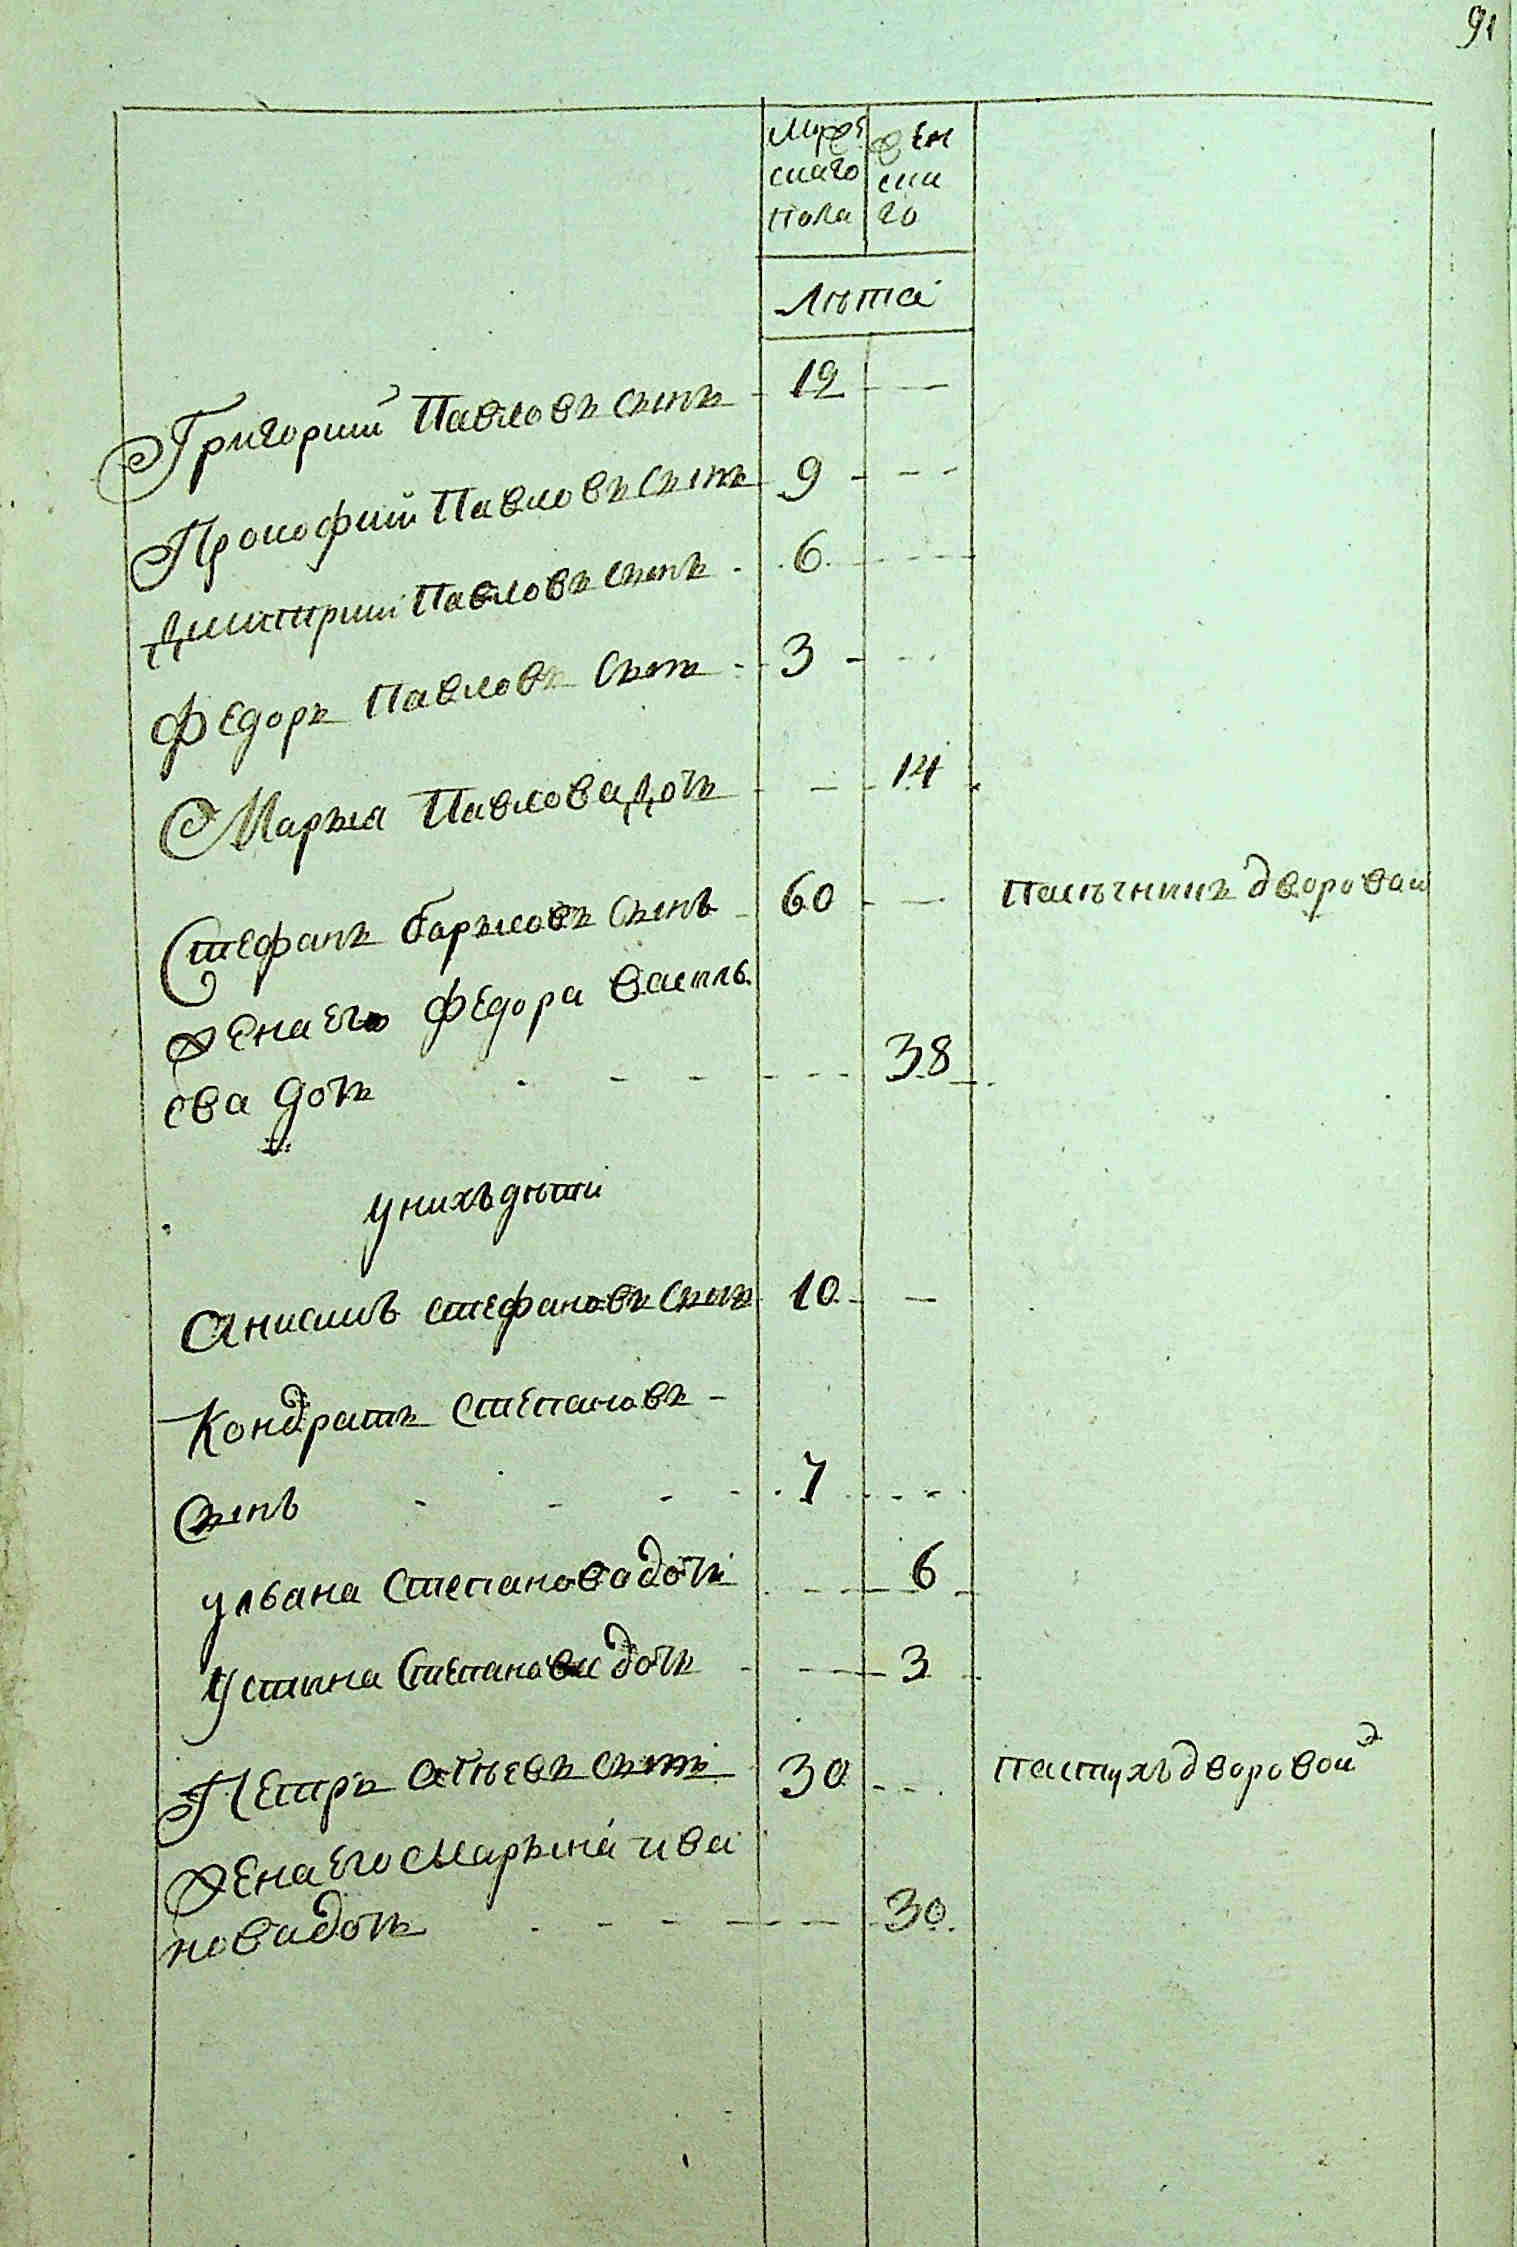 91
Мужес Жен
скаго ска
пола го
Лѣта
Григорий Павловъ сынъ - 12 -
Прокофий Павловъ сынъ 9 - - -
Дмитрий Павловъ сынъ - 6 - - -
Федоръ Павловъ сынъ - 3 - - -
Марья Павлова дочь - - 14
Стефанъ сынъ - 60 - - дворовой
Жена его Федора Василь
ева дочь - - - - - 38
у нихъ дѣти
Анисимъ Стефановъ сынъ 10 - -
Кондратъ Степановъ -
сынъ - - - - 7 - - -
Ульана Степанова дочь - - 6
Устина Степанова дочь - - 3
Петръ сынъ 30 - - пастухъ дворовой
Жена его Марьяна Ива
нова дочь - - - - - 30